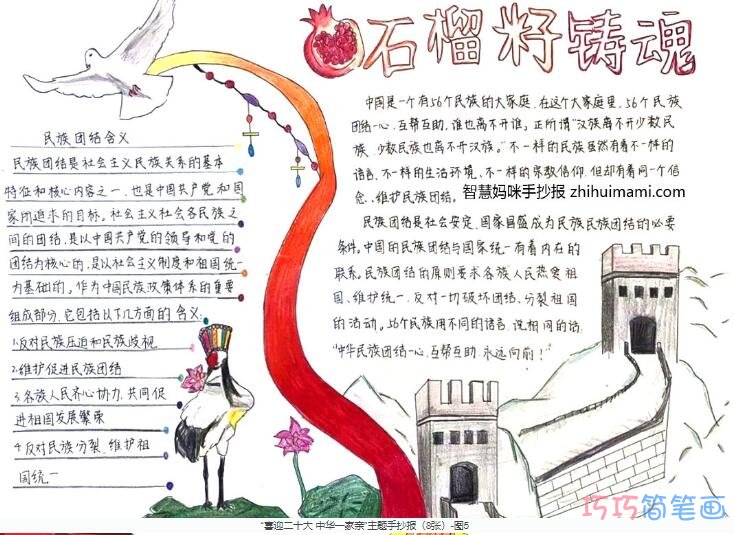 石榴籽铸魂
民族团结含义
民族团结是社会主义民族关系的基本
特征和核心内容之一,也是中国共产党和国
家所追求的目标。社会主义社会各民族之
间的团结,是以中国共产党的领导和党的
团结为核心的,是以社会主义制度和祖国统一
为基础的。作为中国民族政策体系的重要
组成部分,它包括以下几方面的含义:
1.反对民族压迫和民族歧视
2.维护促进民族团结
3.各族人民齐心协力,共同促
进祖国发展繁荣
4.反对民族分裂,维护祖
国统一
中国是一个有56个民族的大家庭,在这个大家庭里,56个民族
团结一心,互帮互助,谁也离不开谁。正所谓“汉族离不开少数民
族,少数民族也离不开汉族。”不一样的民族虽然有着不一样的
语言,不一样的生活环境,不一样的宗教信仰,但却有着同一个信
念,维护民族团结。
智慧妈咪手抄报 zhihuimami.com
民族团结是社会安定,国家昌盛成为民族民族团结的必要
条件。中国的民族团结与国家统一有着内在的
联系。民族团结的原则要求各族人民热爱祖
国、维护统一,反对一切破坏团结、分裂祖国
的活动。56个民族用不同的语言,说相同的话:
“中华民族团结一心,互帮互助,永远向前!”
巧巧简笔画
“喜迎二十大 中华一家亲”主题手抄报（8张）-图5